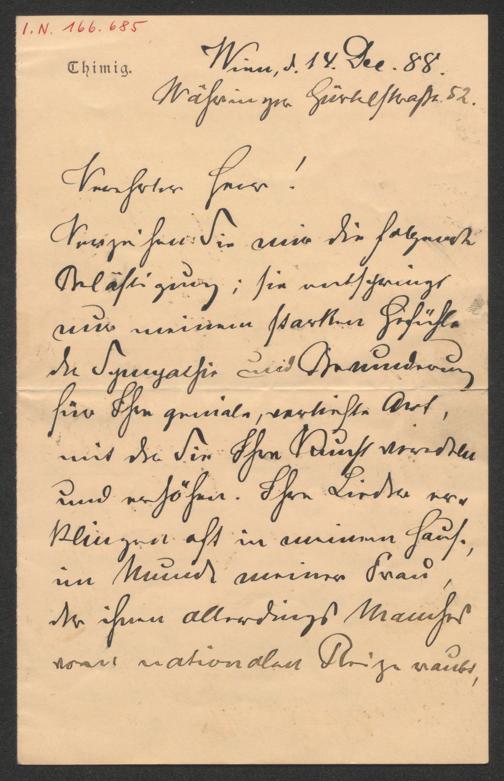 I.N. 166.685
Thimig.
Wien, d. 14. Dec. 88.
Währinger Gürtelstraße 52.
Verehrter Herr!
Verzeihen Sie mir die folgende
Belästigung; sie entspringt
nur meinem starken Gefühle
der Sympathie und Bewunderung
für Ihre geniale, vertiefte Art,
mit der Sie Ihre Kunst veredeln
und erhöhen. Ihre Lieder er-
klingen oft in meinem Hause,
im Munde meiner Frau,
der ihnen allerdings Manches
vom nationalen Reize raubt,